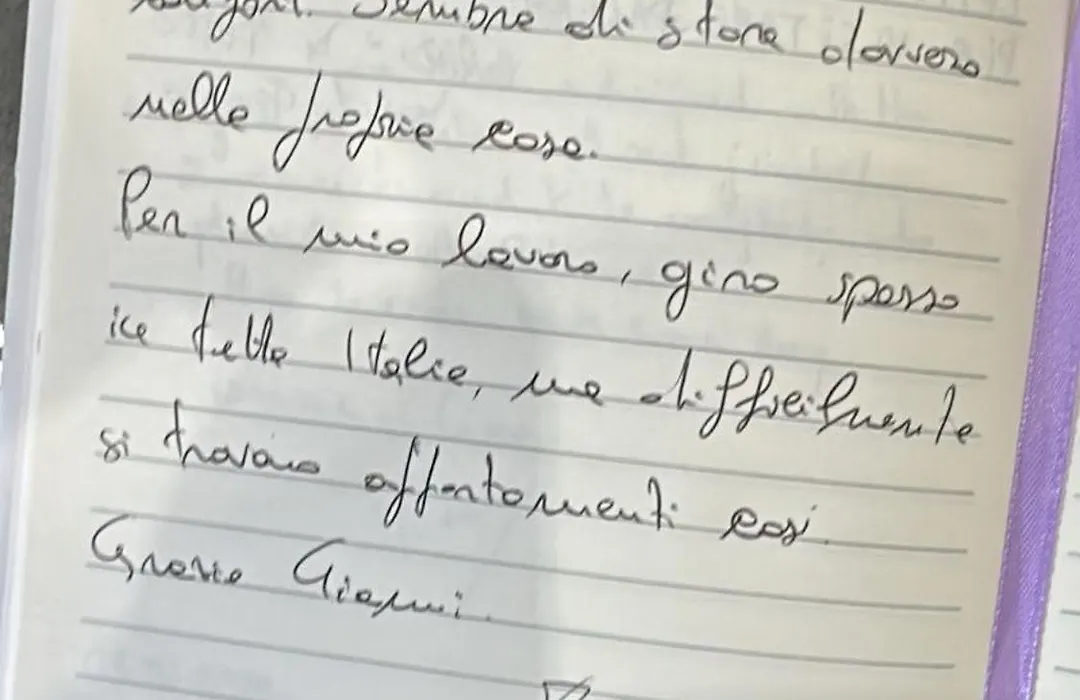 Sembra di stare davvero
nella propria casa.
Per il mio lavoro, giro spesso
in tutta Italia, ma difficilmente
si trovano appartamenti così.
Grazie Gianni.